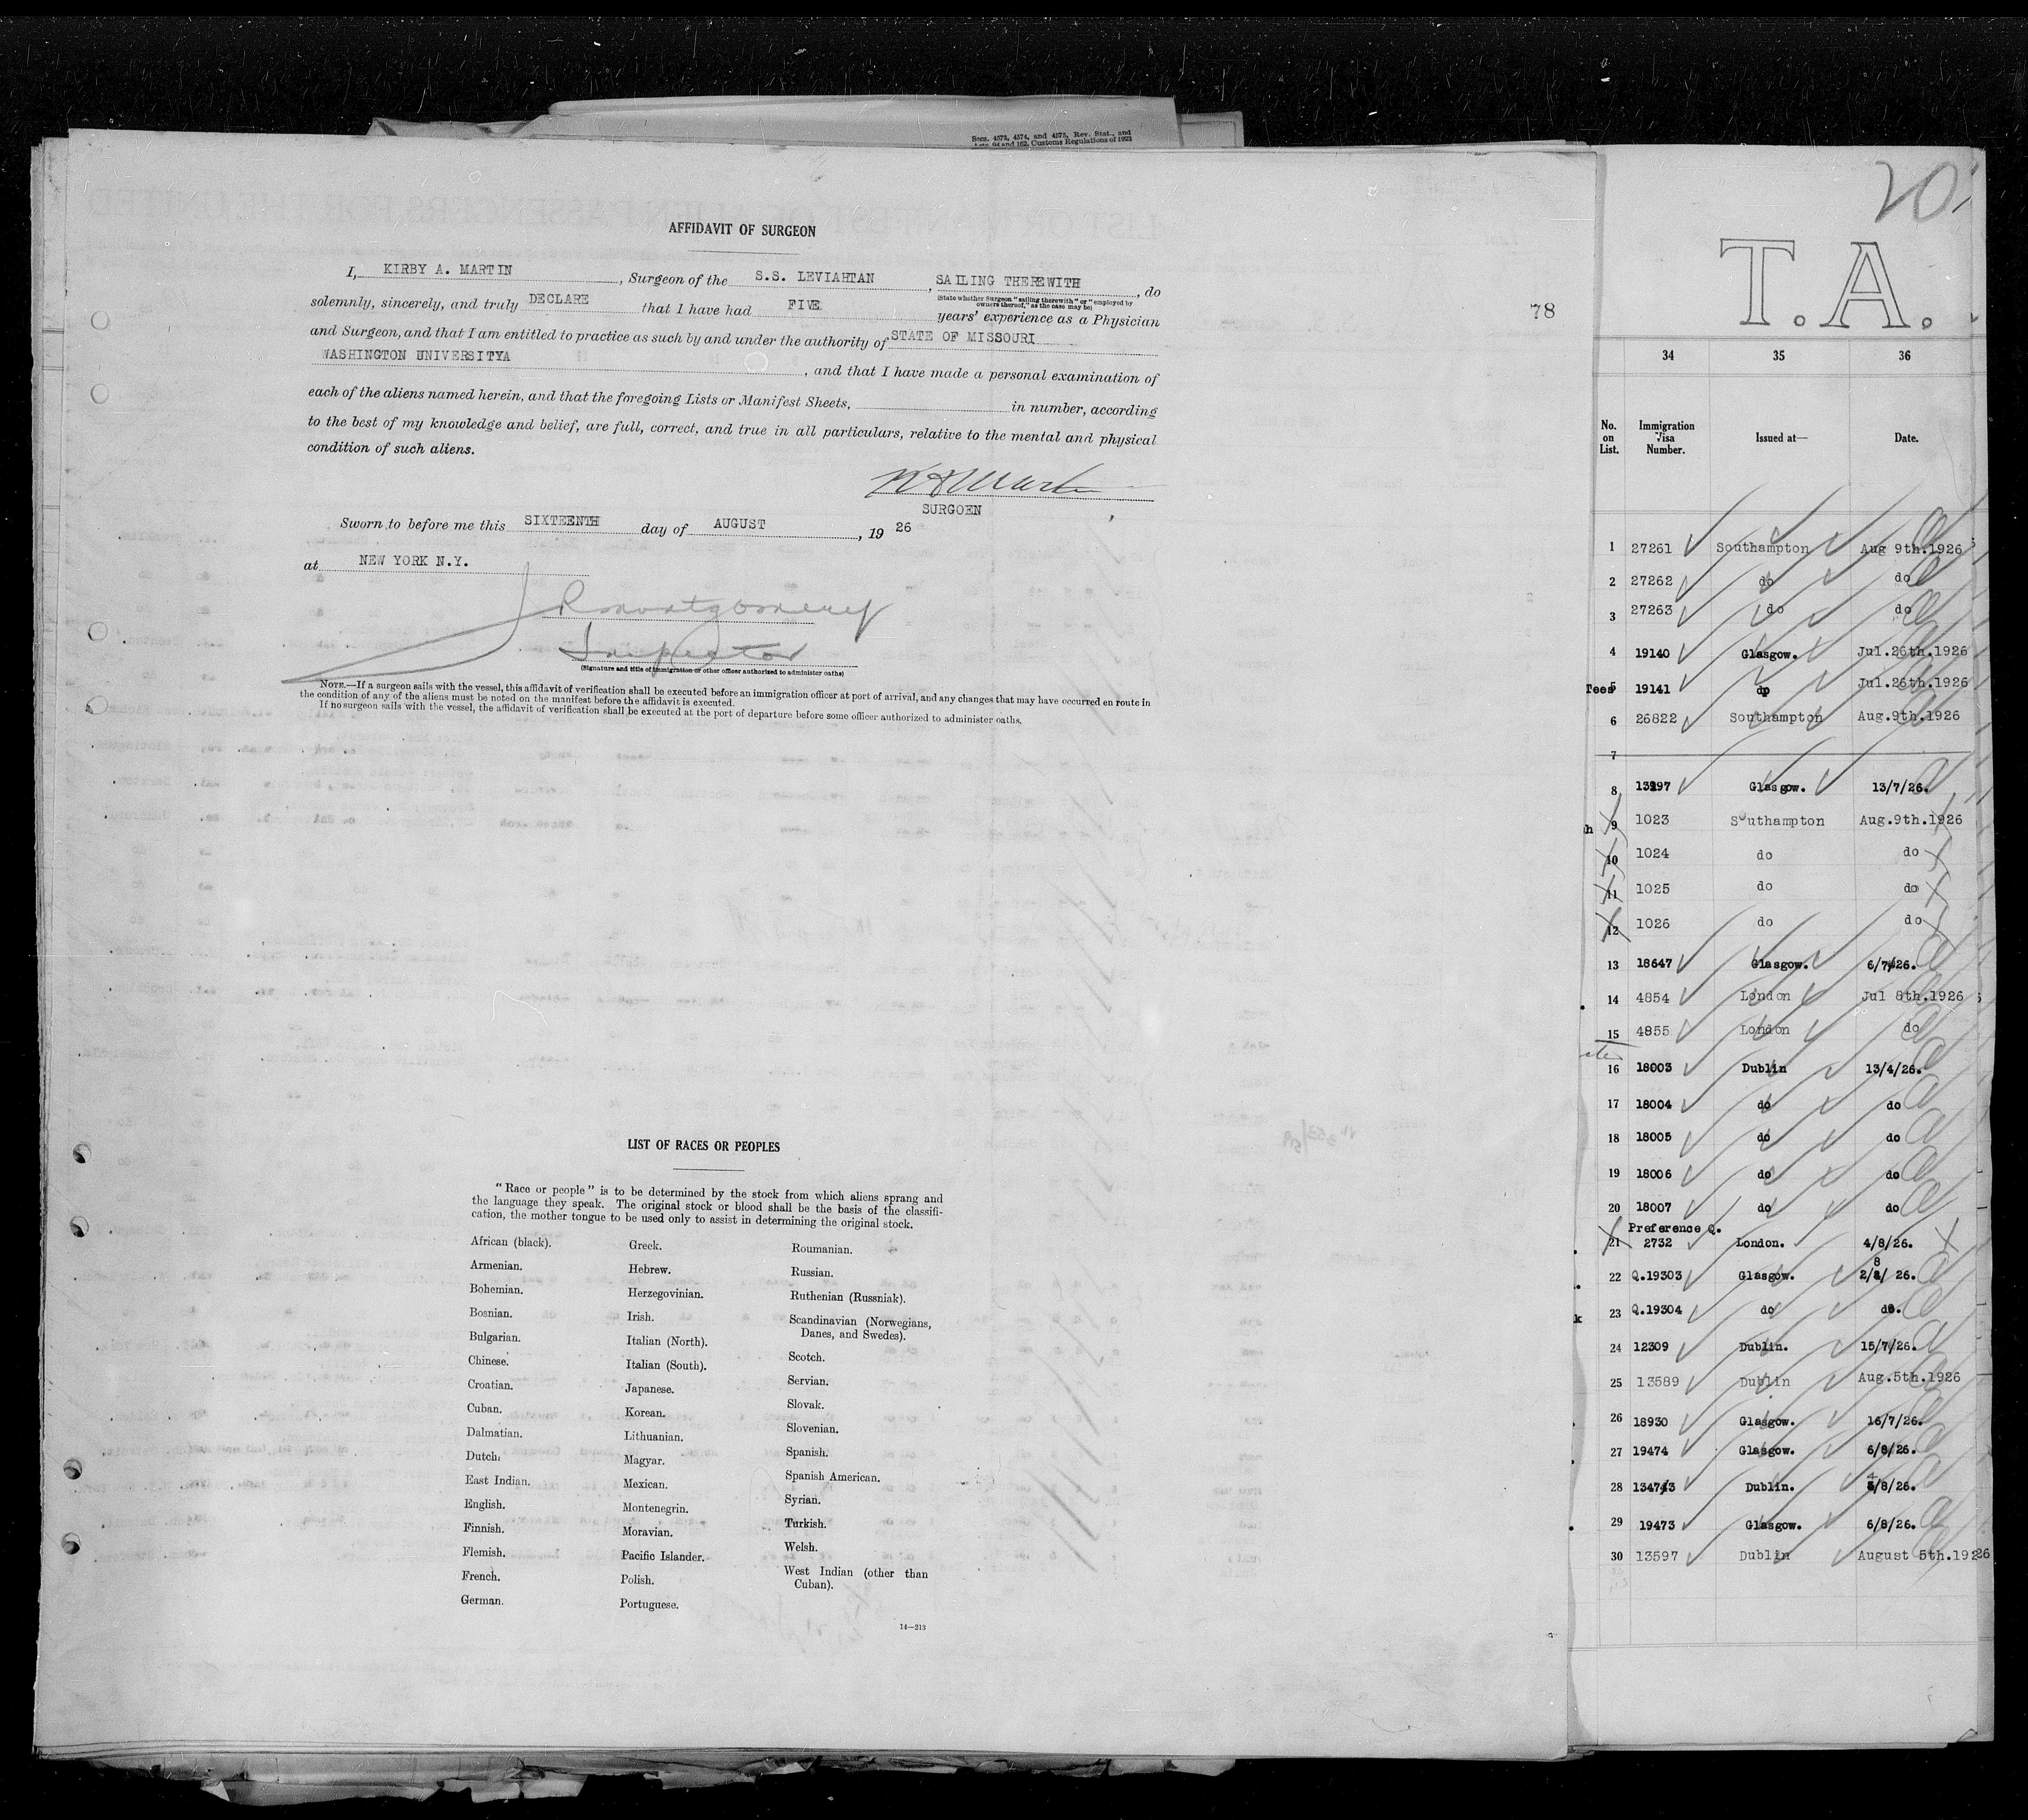 Secs. 4573, 4574, and 4575, Rev. Stat., and
Arts. 94 and 162, Customs Regulations of 1923
AFFIDAVIT OF SURGEON
I, KIRBY A. MARTIN, Surgeon of the S.S. LEVIAHTAN, SAILING THEREWITH, do
(State whether Surgeon "sailing therewith" or "employed by
owners thereof," as the case may be)
solemnly, sincerely, and truly DECLARE that I have had FIVE years' experience as a Physician
and Surgeon, and that I am entitled to practice as such by and under the authority of STATE OF MISSOURI
WASHINGTON UNIVERSITYA, and that I have made a personal examination of
each of the aliens named herein, and that the foregoing Lists or Manifest Sheets, in number, according
to the best of my knowledge and belief, are full, correct, and true in all particulars, relative to the mental and physical
condition of such aliens.
K A Martin
SURGOEN
Sworn to before me this SIXTEENTH day of AUGUST, 19 26
at NEW YORK N.Y.
J R Montgomery
Inspector
(Signature and title of immigration or other officer authorized to administer oaths)
NOTE.—If a surgeon sails with the vessel, this affidavit of verification shall be executed before an immigration officer at port of arrival, and any changes that may have occurred en route in
the condition of any of the aliens must be noted on the manifest before the affidavit is executed.
If no surgeon sails with the vessel, the affidavit of verification shall be executed at the port of departure before some officer authorized to administer oaths.
78
LIST OF RACES OR PEOPLES
"Race or people" is to be determined by the stock from which aliens sprang and
the language they speak. The original stock or blood shall be the basis of the classifi-
cation, the mother tongue to be used only to assist in determining the original stock.
African (black).
Armenian.
Bohemian.
Bosnian.
Bulgarian.
Chinese.
Croatian.
Cuban.
Dalmatian.
Dutch.
East Indian.
English.
Finnish.
Flemish.
French.
German.
Greek.
Hebrew.
Herzegovinian.
Irish.
Italian (North).
Italian (South).
Japanese.
Korean.
Lithuanian.
Magyar.
Mexican.
Montenegrin.
Moravian.
Pacific Islander.
Polish.
Portuguese.
Roumanian.
Russian.
Ruthenian (Russniak).
Scandinavian (Norwegians,
Danes, and Swedes).
Scotch.
Servian.
Slovak.
Slovenian.
Spanish.
Spanish American.
Syrian.
Turkish.
Welsh.
West Indian (other than
Cuban).
14—213
20
T.A.
34 35 36
No. on List. Immigration Visa Number. Issued at— Date.
1 27261 Southampton Aug 9th.1926
2 27262 do do
3 27263 do do
4 19140 Glasgow. Jul.26th.1926
Tees 5 19141 do Jul.26th.1926
6 26822 Southampton Aug.9th.1926
7
8 13197 Glasgow. 13/7/26.
h 9 1023 Southampton Aug.9th.1926
10 1024 do do
11 1025 do do
12 1026 do do
13 18647 Glasgow. 6/7/26.
14 4854 London Jul 8th.1926
15 4855 London do
16 18003 Dublin 13/4/26.
17 18004 do do
18 18005 do do
19 18006 do do
20 18007 do do
Preference Q.
21 2732 London. 4/8/26.
22 Q.19303 Glasgow. 2/8/ 26.
k 23 Q.19304 do do.
24 12309 Dublin. 15/7/26.
25 13589 Dublin Aug.5th.1926
26 18930 Glasgow. 16/7/26.
27 19474 Glasgow. 6/8/26.
28 13473 Dublin. 4/8/26.
29 19473 Glasgow. 6/8/26.
30 13597 Dublin August 5th.1926